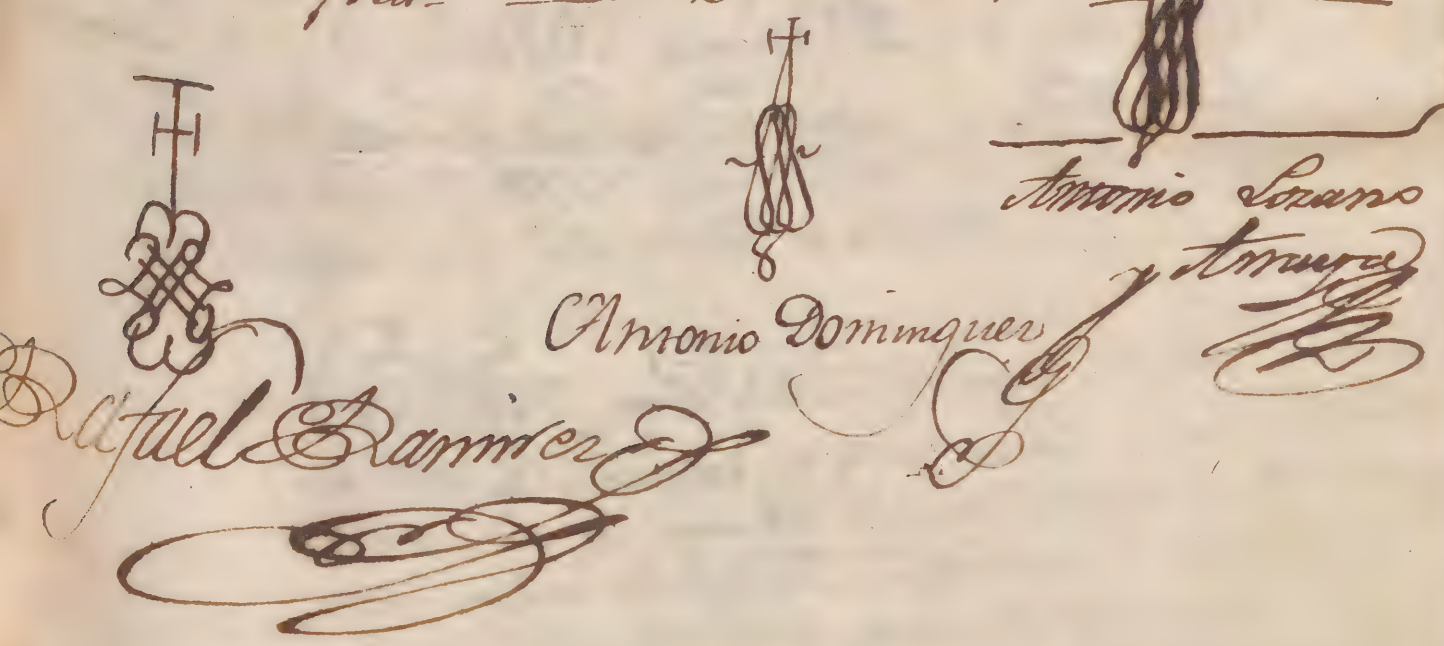 Antonio Lozano
y Amaya
Antonio Dominguez
Rafael Ramirez